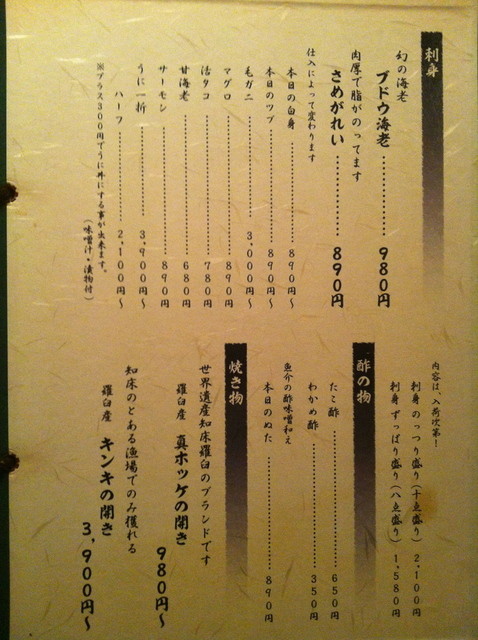 刺身
幻の海老
ブドウ海老 980円
肉厚で脂がのってます
さめがれい 890円
仕入によって変わります
本日の白身 890円〜
本日のツブ 890円〜
毛ガニ 3,000円〜
マグロ 890円
活タコ 780円
甘海老 680円
サーモン 890円
うに一折 3,900円〜
ハーフ 2,100円〜
※プラス300円でうに丼にする事が出来ます。
(味噌汁・漬物付)
内容は、入荷次第!
刺身のっつり盛り(十点盛り) 2,100円
刺身ずっぱり盛り(八点盛り) 1,580円
酢の物
たこ酢 650円
わかめ酢 350円
魚介の酢味噌和え
本日のぬた 890円
焼き物
世界遺産知床羅臼のブランドです
羅臼産 真ホッケの開き 980円〜
知床のとある漁場でのみ獲れる
羅臼産 キンキの開き 3,900円〜